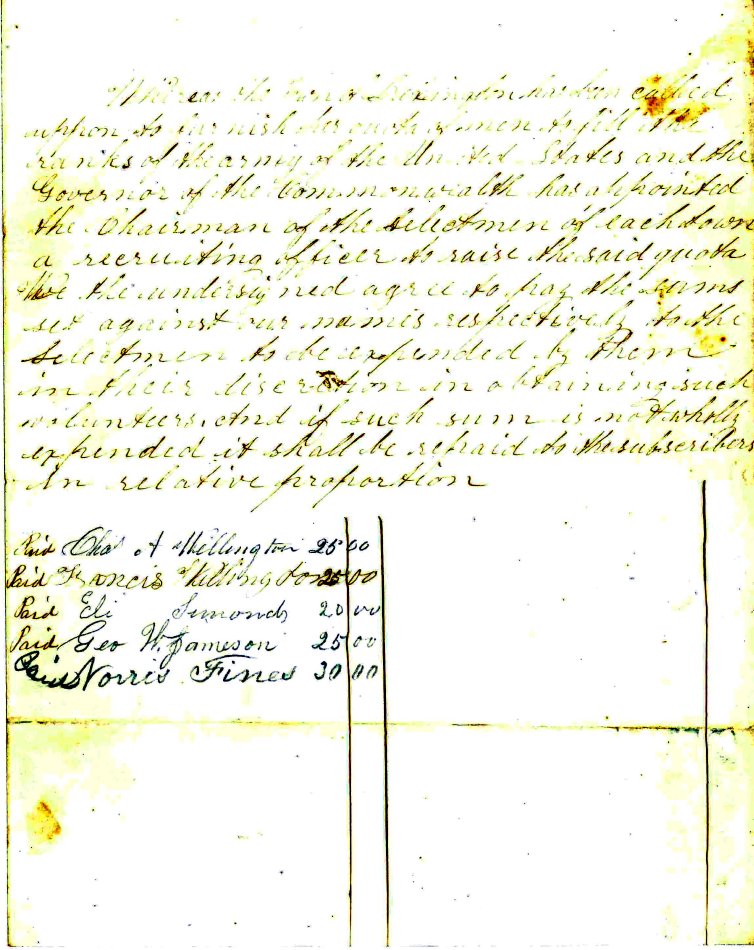 Whereas the Town of Lexington has been called
uppon to furnish her quota of men to fill the
ranks of the army of the United States and the
Governor of the Commonwealth has appointed
the Chairman of the Selectmen of each town
a recruiting officer to raise the said quota
We the undersigned agree to pay the sums
set against our names respectively to the
Selectmen to be expended by them
in their discretion in obtaining such
volunteers. And if such sum is not wholly
expended it shall be repaid to the subscribers
in relative proportion
Paid Chas A Wellington 25 00
Paid Francis Wellington 25 00
Paid Eli Simonds 20 00
Paid Geo W. Jameson 25 00
Paid Norris Fines 30 00